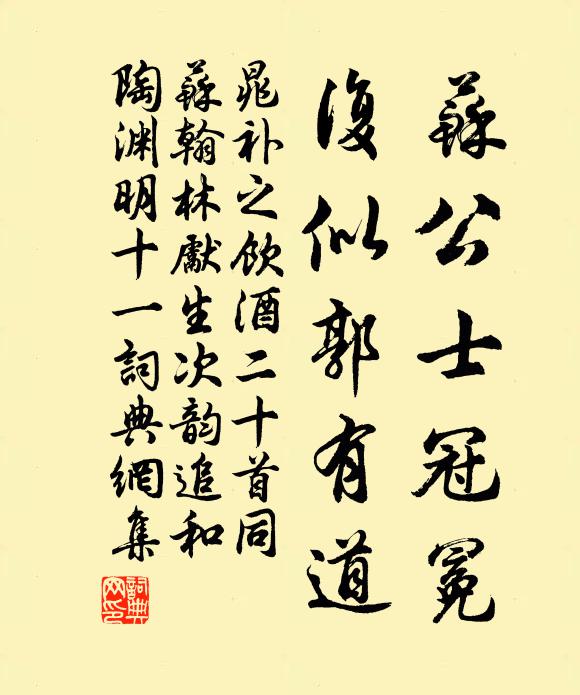 蘇公士冠冕
復似郭有道
晁补之飲酒二十首同
蘇翰林獻生次韵追和
陶渊明十一詞典網集
詞典网印